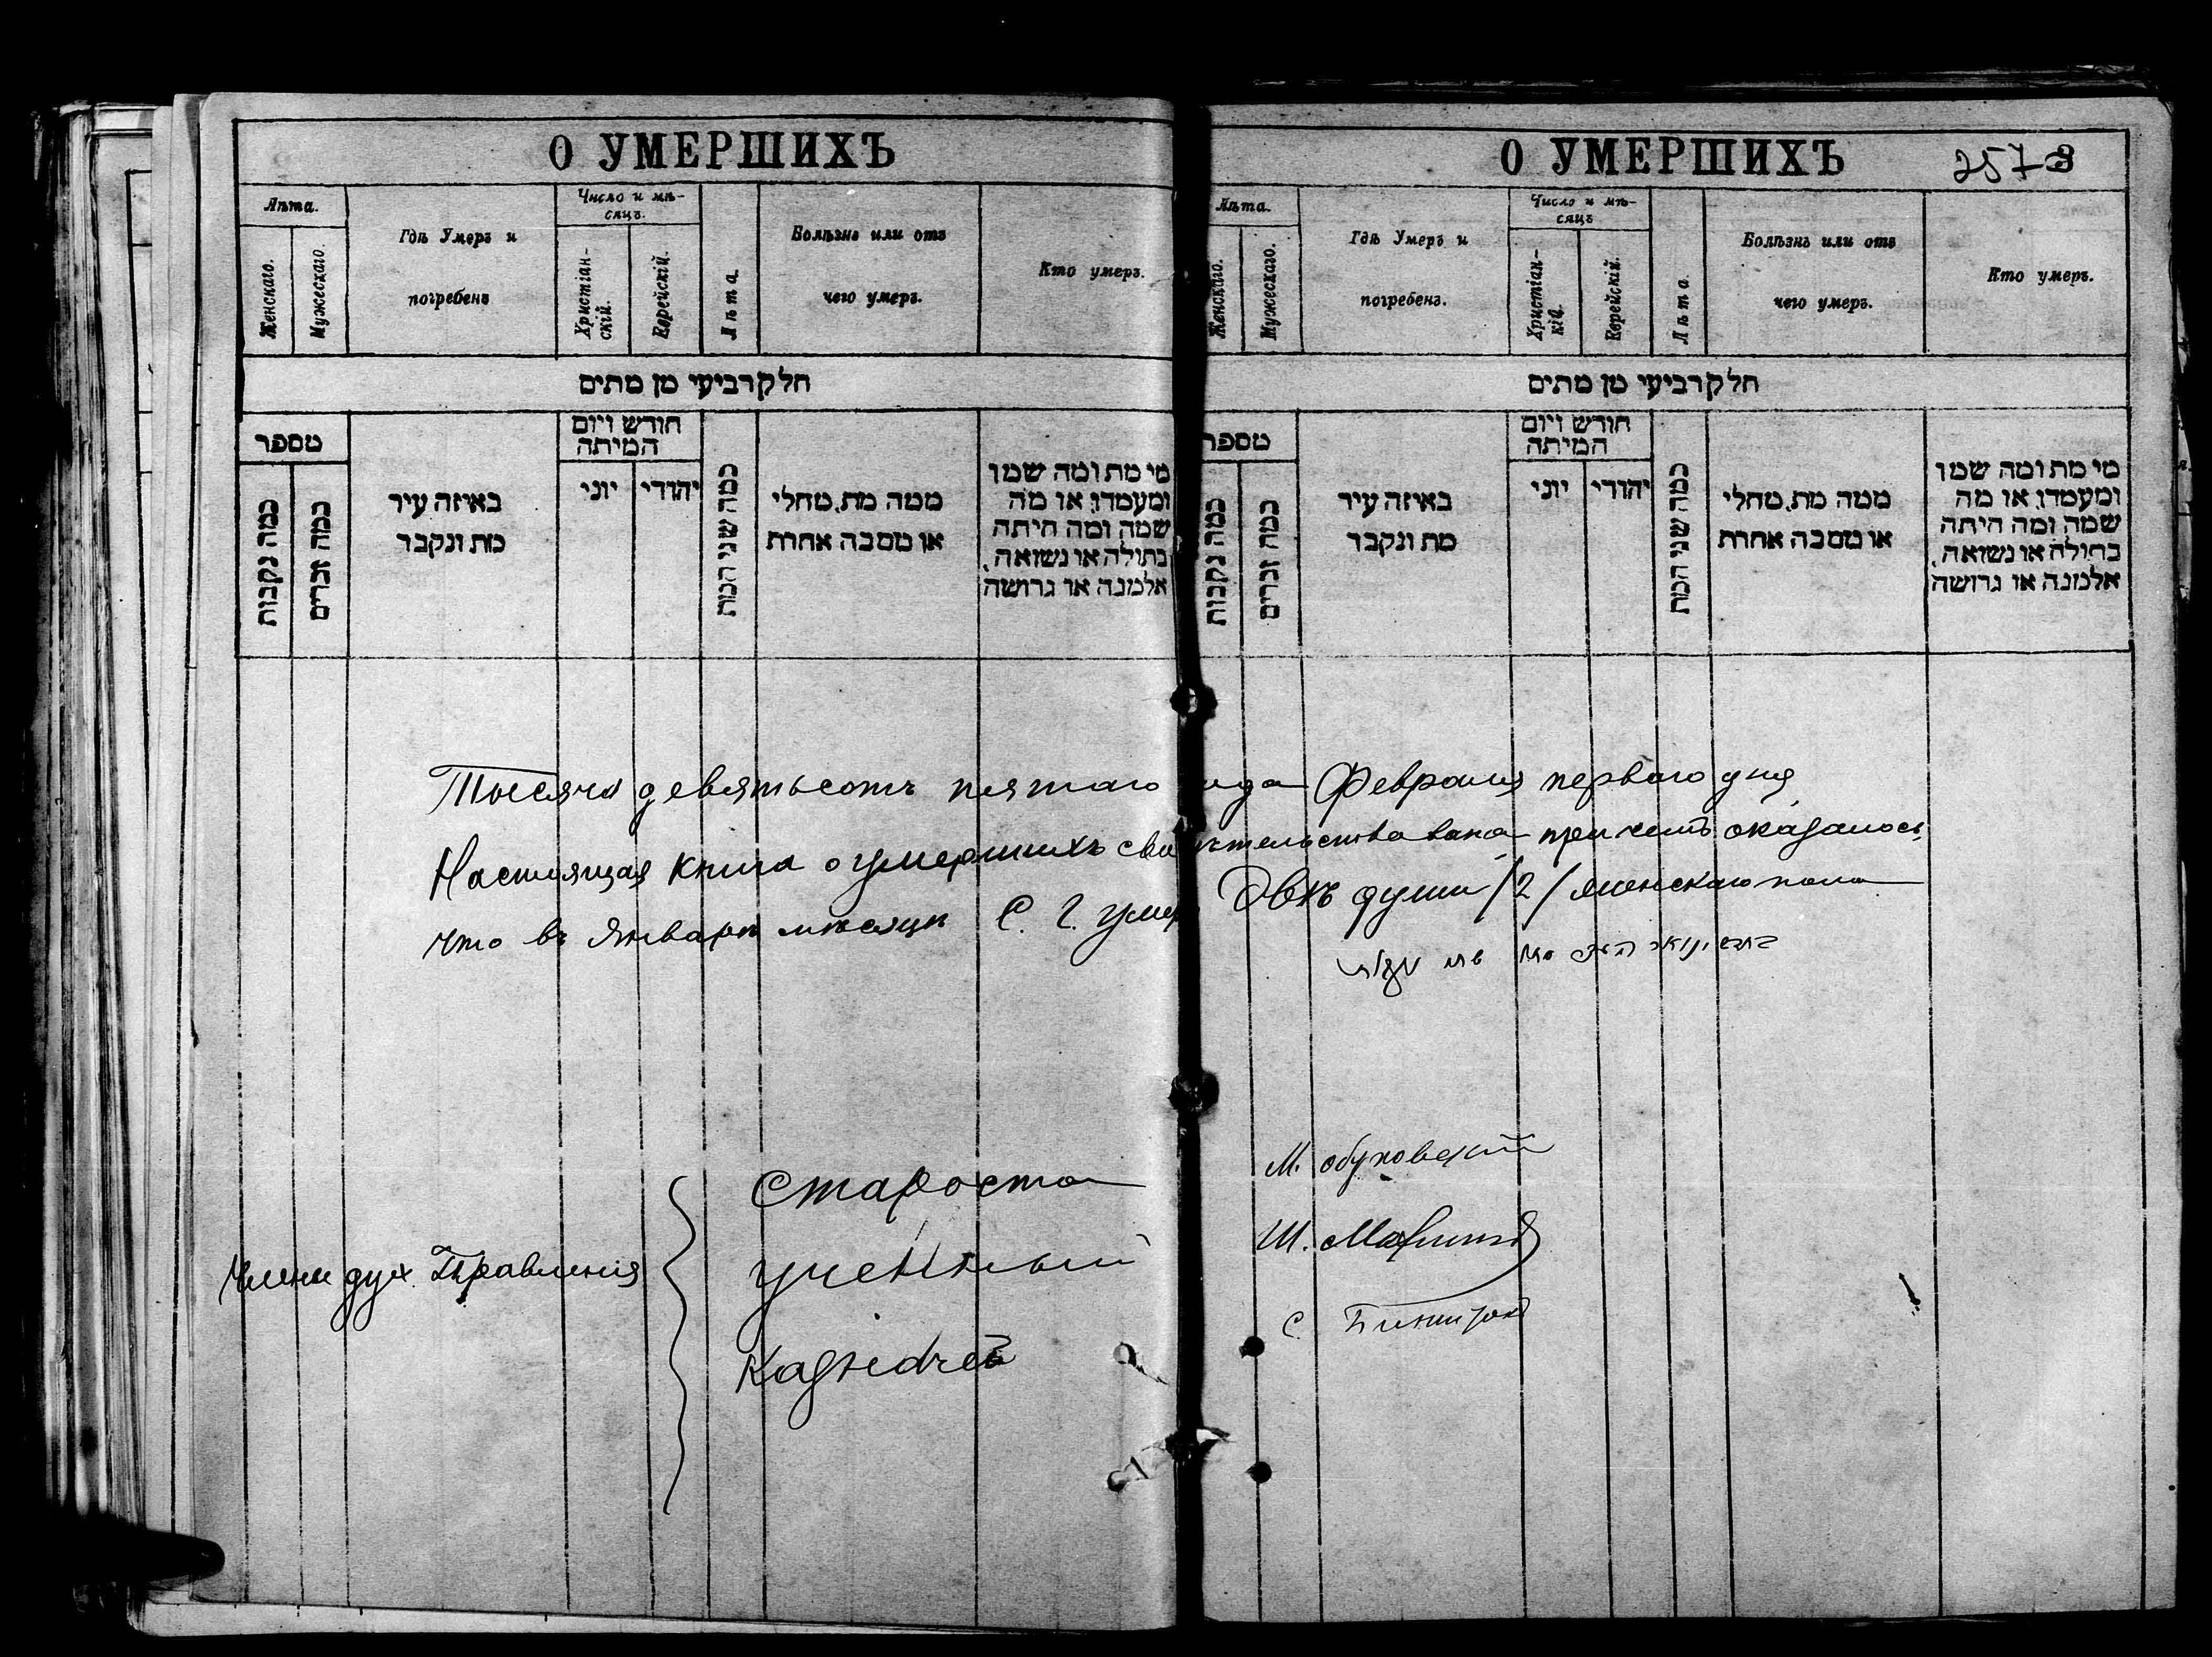 О УМЕРШИХЪ
Лѣта.
Женскаго.
Мужескаго.
Гдѣ Умеръ и
погребенъ
Число и мѣ-
сяцъ.
Христіан-
скій.
Еврейскій.
Лѣта.
Болѣзнь или отъ
чего умеръ.
Кто умеръ.
חלק רביעי מן מתים
מספר
כמה נקבות
כמה זכרים
באיזה עיר
מת ונקבר
חודש ויום
המיתה
יוני
יהודי
כמה שני המת
ממה מת, מחלי
או מסבה אחרת
מי מת ומה שמו
ומעמדו, או מה
שמה ומה היתה
בתולה או נשואה,
אלמנה או גרושה
О УМЕРШИХЪ
257
Лѣта.
Женскаго.
Мужескаго.
Гдѣ Умеръ и
погребенъ.
Число и мѣ-
сяцъ
Христіан-
кій.
Еврейскій.
Лѣта.
Болѣзнь или отъ
чего умеръ.
Кто умеръ.
חלק רביעי מן מתים
מספר
כמה נקבות
כמה זכרים
באיזה עיר
מת ונקבר
חודש ויום
המיתה
יוני
יהודי
כמה שני המת
ממה מת, מחלי
או מסבה אחרת
מי מת ומה שמו
ומעמדו, או מה
שמה ומה היתה
בתולה או נשואה,
אלמנה או גרושה
Тысяча девятьсотъ пятаго года Февраля перваго дня
Настоящая книга о умершихъ свидѣтельствована при чемъ оказалось
что въ Январѣ мѣсяцѣ С. Г. умер Двѣ души /2/ женскаго пола
Члены дух. Правленія
Староста
М. Обуховский
ученный
Ш.
Казначей
С.